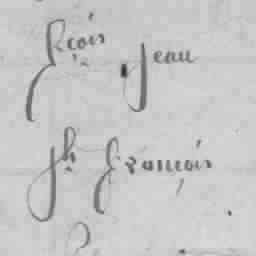 fcois jean
jh françois